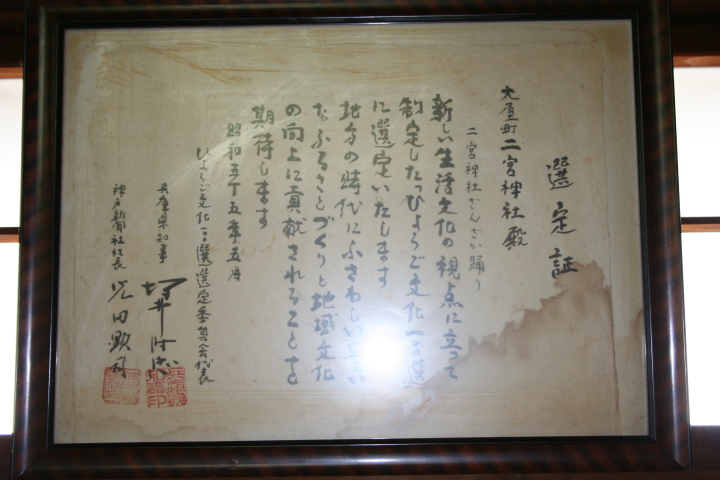 選定証
大屋町二宮神社殿
二宮神社ざんざか踊り
新しい生活文化の視点に立って
制定したひょうご文化一〇〇選
に選定いたします
地方の時代にふさわしい
なふるさとづくりと地域文化
の向上に貢献されることを
期待します
昭和五十五年五月
ひょうご文化一〇〇選選定委員会代表
兵庫県知事 坂井時忠
神戸新聞社社長 光田顕司